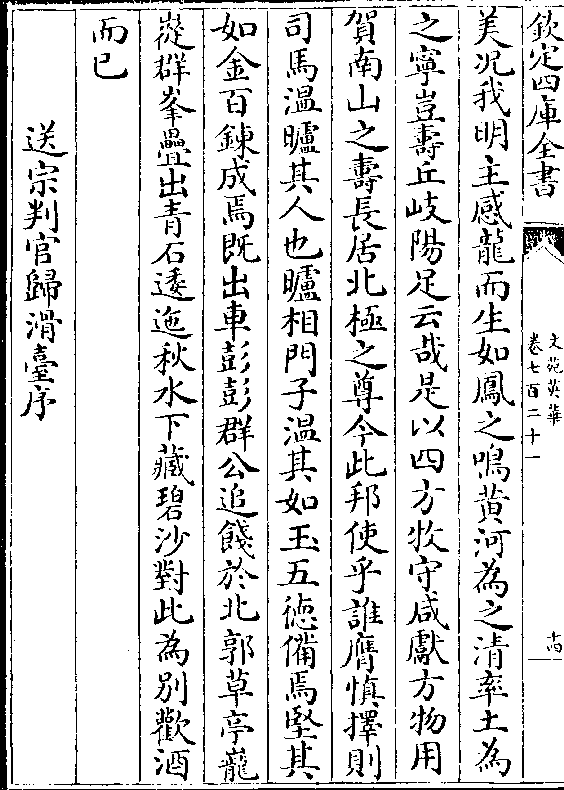 欽定四庫全書
文苑英華
卷七百二十一
十四
美況我明主感龍而生如鳳之鳴黄河為之清率土為
之寧豈壽丘岐陽足云哉是以四方牧守咸獻方物用
賀南山之壽長居北極之尊今此邦使乎誰膺慎擇則
司馬温曠其人也曠相門子温其如玉五徳備焉堅其
如金百鍊成焉既出車彭彭群公追餞於北郭草亭巃
嵸群峯疊出青石逶迤秋水下藏碧沙對此為別歡酒
而已
送宗判官歸滑臺序